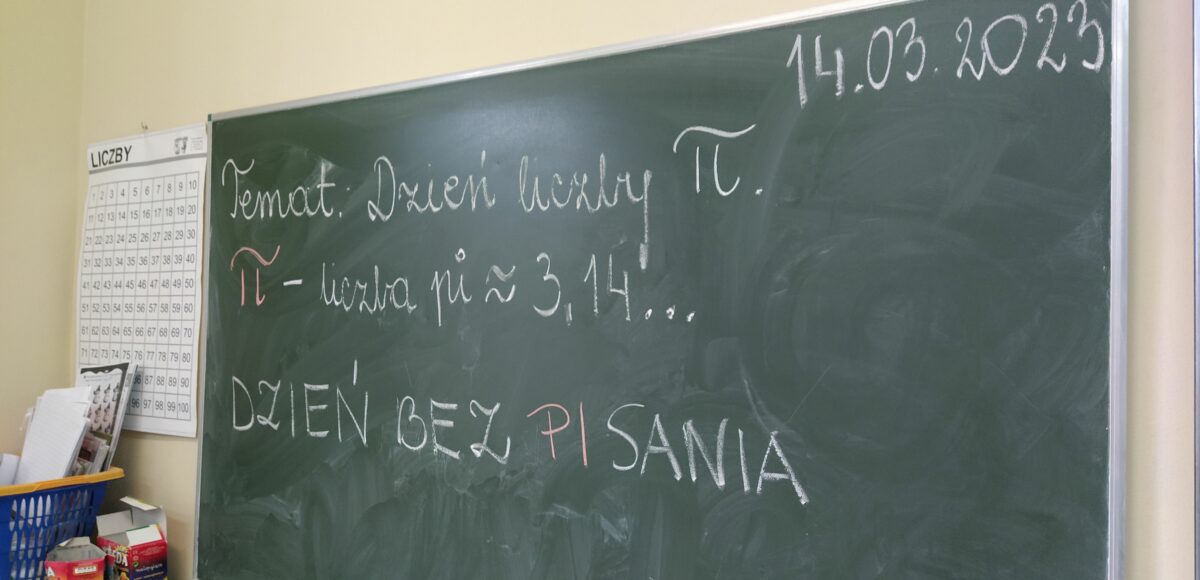 14.03.2023
Temat: Dzień liczby π.
π – liczba pi ≈ 3,14...
DZIEŃ BEZ PISANIA
LICZBY
1 2 3 4 5 6 7 8 9 10
11 12 13 14 15 16 17 18 19 20
21 22 23 24 25 26 27 28 29 30
31 32 33 34 35 36 37 38 39 40
41 42 43 44 45 46 47 48 49 50
51 52 53 54 55 56 57 58 59 60
61 62 63 64 65 66 67 68 69 70
71 72 73 74 75 76 77 78 79 80
86 87 88 89 90
96 97 98 99 100